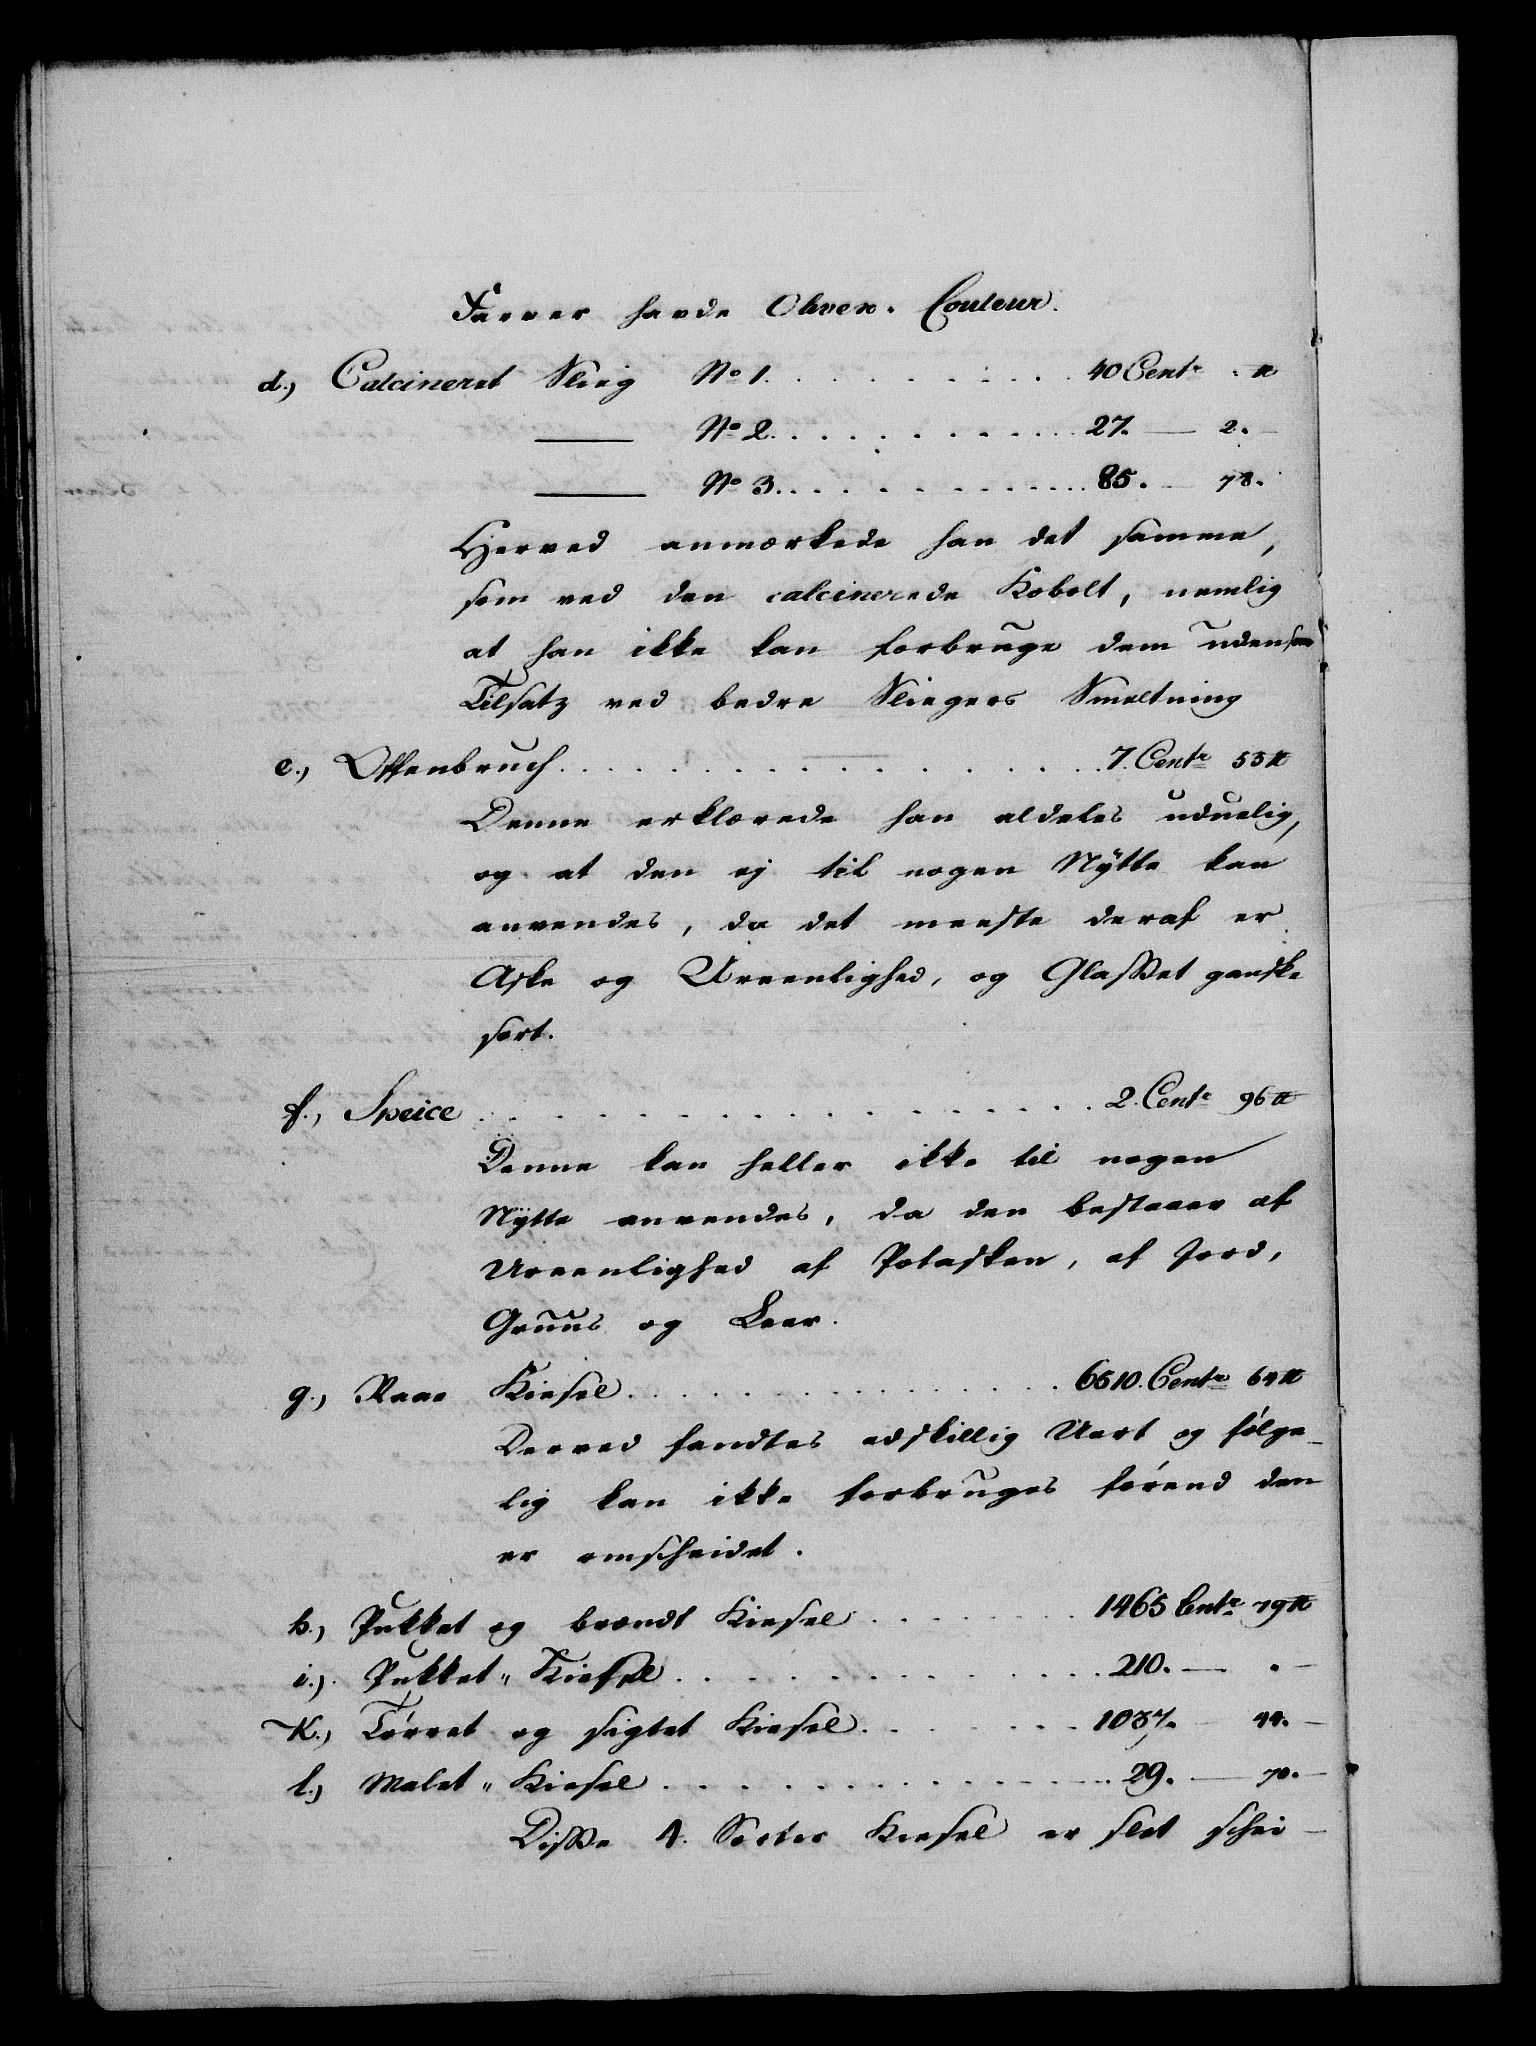 Farver havde Oliven-Couleur.
d.) Calcineret Slieg No 1. . . . . . . . . . . 40 Centr " ℔
——— No 2. . . . . . . . . . . 27. — 2. —
——— No 3. . . . . . . . . . . 85. — 78.
Herved anmærkede han det samme,
som ved den calcinerede Kobolt, nemlig
at han ikke kan forbruge dem uden som
Tilsatz ved bedre Sliegers Smeltning
e.) Offenbruch . . . . . . . . . . . . 7. Centr 53 ℔
Denne erklærede han aldeles uduelig,
og at den ej til nogen Nÿtte kan
anvendes, da det meeste deraf er
Aske og Ureenlighed, og Glasset ganske
sort.
f.) Speice . . . . . . . . . . . . . . . 2. Centr 96 ℔
Denne kan heller ikke til nogen
Nÿtte anvendes, da den bestaaer af
Ureenlighed af Potasken, af Jord,
Gruus og Leer.
g.) Raae Kiesel . . . . . . . . . . . . 6510. Centr 64 ℔
Derved fandtes adskillig Uart og følge-
lig kan ikke forbruges førend den
er omscheidet.
h.) Pukket og brændt Kiesel . . . . . . 1465 Centr 79 ℔
i.) Pukket " Kiesel . . . . . . . . . . 210. — " —
K.) Tørret og sigtet Kiesel . . . . . . 1037. — 44. —
l.) Malet " Kiesel . . . . . . . . . . . 29. — 70. —
Disse 4. Sorter Kiesel er slet schei-